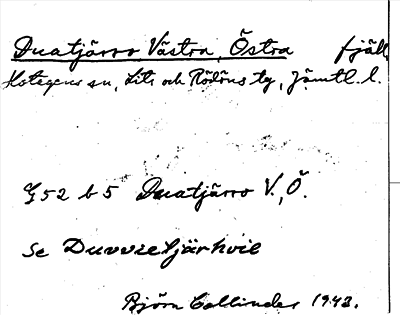 Duatjårro Västra, Östra fjäll
Hotagens sn, Lits och Rödöns tg, Jämtl. l.
G52 b5 Duatjårro V., Ö.
Se Duvvietjärhvie
Björn Collinder 1943.